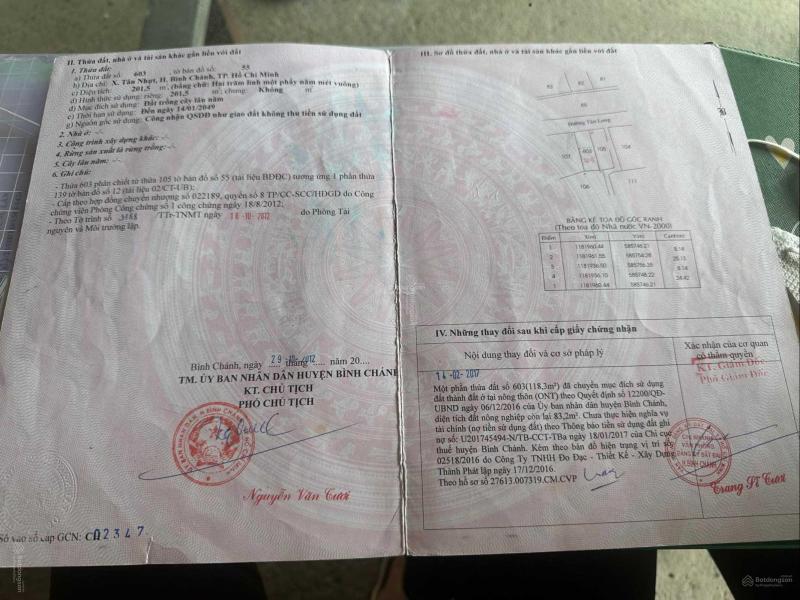 II. Thửa đất, nhà ở và tài sản khác gắn liền với đất
1. Thửa đất:
a) Thửa đất số: 603 , tờ bản đồ số: 55
b) Địa chỉ: X. Tân Nhựt, H. Bình Chánh, TP. Hồ Chí Minh
c) Diện tích: 201,5 m², (bằng chữ: Hai trăm linh một phẩy năm mét vuông)
d) Hình thức sử dụng: riêng: 201,5 m²; chung: Không m²
đ) Mục đích sử dụng: Đất trồng cây lâu năm
e) Thời hạn sử dụng: Đến ngày 14/01/2049
g) Nguồn gốc sử dụng: Công nhận QSDĐ như giao đất không thu tiền sử dụng đất
2. Nhà ở: -/-
3. Công trình xây dựng khác: -/-
4. Rừng sản xuất là rừng trồng: -/-
5. Cây lâu năm: -/-
6. Ghi chú:
- Thửa 603 phân chiết từ thửa 105 tờ bản đồ số 55 (tài liệu BĐĐC) tương ứng 1 phần thửa
139 tờ bản đồ số 12 (tài liệu 02/CT-UB);
- Cấp theo hợp đồng chuyển nhượng số 022189, quyển số 8 TP/CC-SCC/HĐGD do Công
chứng viên Phòng Công chứng số 1 công chứng ngày 18/8/2012;
- Theo Tờ trình số TTr-TNMT ngày 18-10-2012 do Phòng Tài
nguyên và Môi trường lập.
Bình Chánh, ngày 29-10-2012 tháng năm 20....
TM. ỦY BAN NHÂN DÂN HUYỆN BÌNH CHÁNH
KT. CHỦ TỊCH
PHÓ CHỦ TỊCH
Nguyễn Văn Tươi
Số vào sổ cấp GCN: CH02347
III. Sơ đồ thửa đất, nhà ở và tài sản khác gắn liền với đất
83
82
81
Đường Tân Long
103
603
105
104
106
111
BẢNG KÊ TỌA ĐỘ GÓC RANH
(Theo tọa độ Nhà nước VN-2000)
Điểm X(m) Y(m) Cạnh(m)
1 1181960.44 585746.21
8.14
2 1181961.55
25.13
3
8.14
4 585748.22
24.42
1 1181960.44 585746.21
IV. Những thay đổi sau khi cấp giấy chứng nhận
Nội dung thay đổi và cơ sở pháp lý
Xác nhận của cơ quan
có thẩm quyền
14-02-2017
KT. Giám Đốc
Phó Giám Đốc
Một phần thửa đất số 603(118,3m²) đã chuyển mục đích sử dụng
đất thành đất ở tại nông thôn (ONT) theo Quyết định số 12200/QĐ-
UBND ngày 06/12/2016 của Ủy ban nhân dân huyện Bình Chánh,
diện tích đất nông nghiệp còn lại 83,2m². Chưa thực hiện nghĩa vụ
tài chính (nợ tiền sử dụng đất) theo Thông báo tiền sử dụng đất ghi
nợ số: U201745494-N/TB-CCT-TBa ngày 18/01/2017 của Chi cục
thuế huyện Bình Chánh. Kèm theo bản đồ hiện trạng vị trí số
02518/2016 do Công ty TNHH Đo Đạc - Thiết Kế - Xây Dựng
Thành Phát lập ngày 17/12/2016.
Theo hồ sơ số 27613.007319.CM.CVP
CHI NHÁNH
VĂN PHÒNG
ĐĂNG KÝ ĐẤT ĐAI
H.BÌNH CHÁNH
Trang Sĩ Tươi
Batdongsan